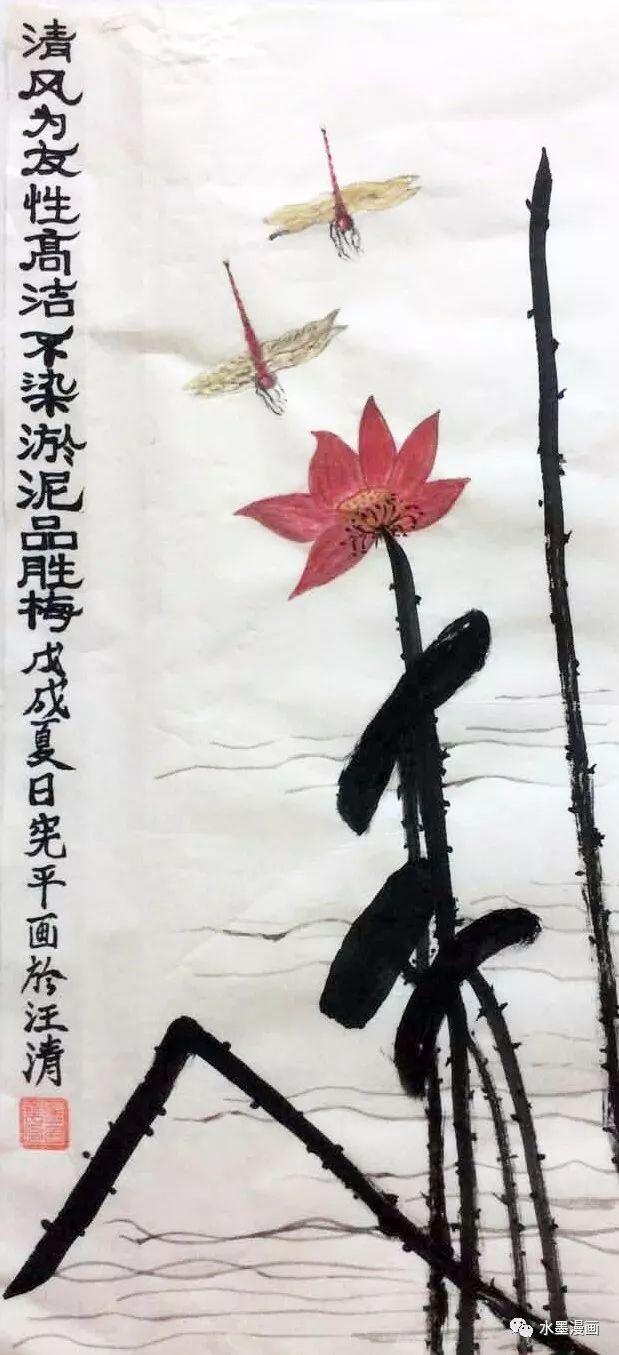 清风为友性高洁不染淤泥品胜梅戊戌夏日宪平画於汪清
水墨漫画